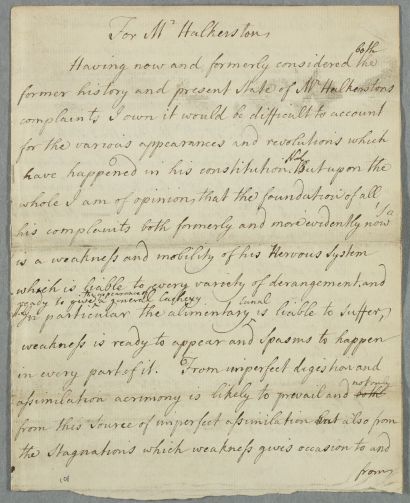 For Mr Halkerston,
Having now and formerly considered both the
former history and present State of Mr Halkerstons
complaints I own it would be difficult to account
for the various appearances and revolutions which
have happened in his constitution. But upon the
whole I am of opinion, that the foundation of all
his complaints both formerly and more evidently now
is a weakness and mobility of his Nervous System
which is liable to every variety of derangement and
ready to give the appearance of a general Cachexy.
In particular the alimentary Canal is liable to Suffer,
weakness is ready to appear and Spasms to happen
in every part of it. From imperfect digestion and
assimilation acrimony is likely to prevail and not only
from this source of imperfect assimilation but also from
the Stagnations which weakness gives occasion to and
from